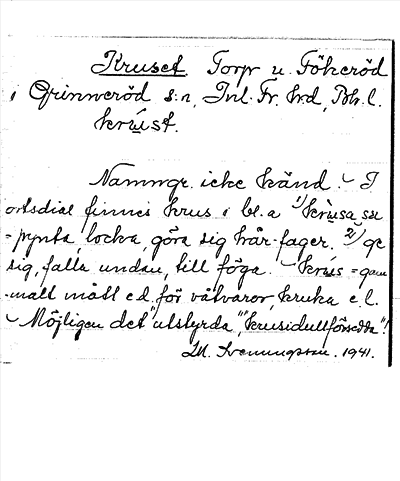 Kruset. Torp u. Fökeröd
i Grinneröd s:n, Inl. Fr. hrd, Boh. l.
krúst.
Namngr. icke känd. I
ortsdial finnes krus i bl. a ¹⁾krùsa sæ
= pynta locka, göra sig hår-fager. ²⁾ge
sig, falla undan, till föga. krús = gam
-malt mått e.d. för våtvaror, kruka e. l.
Möjligen det "utstyrda", "krusidullförsedda"!
1941.